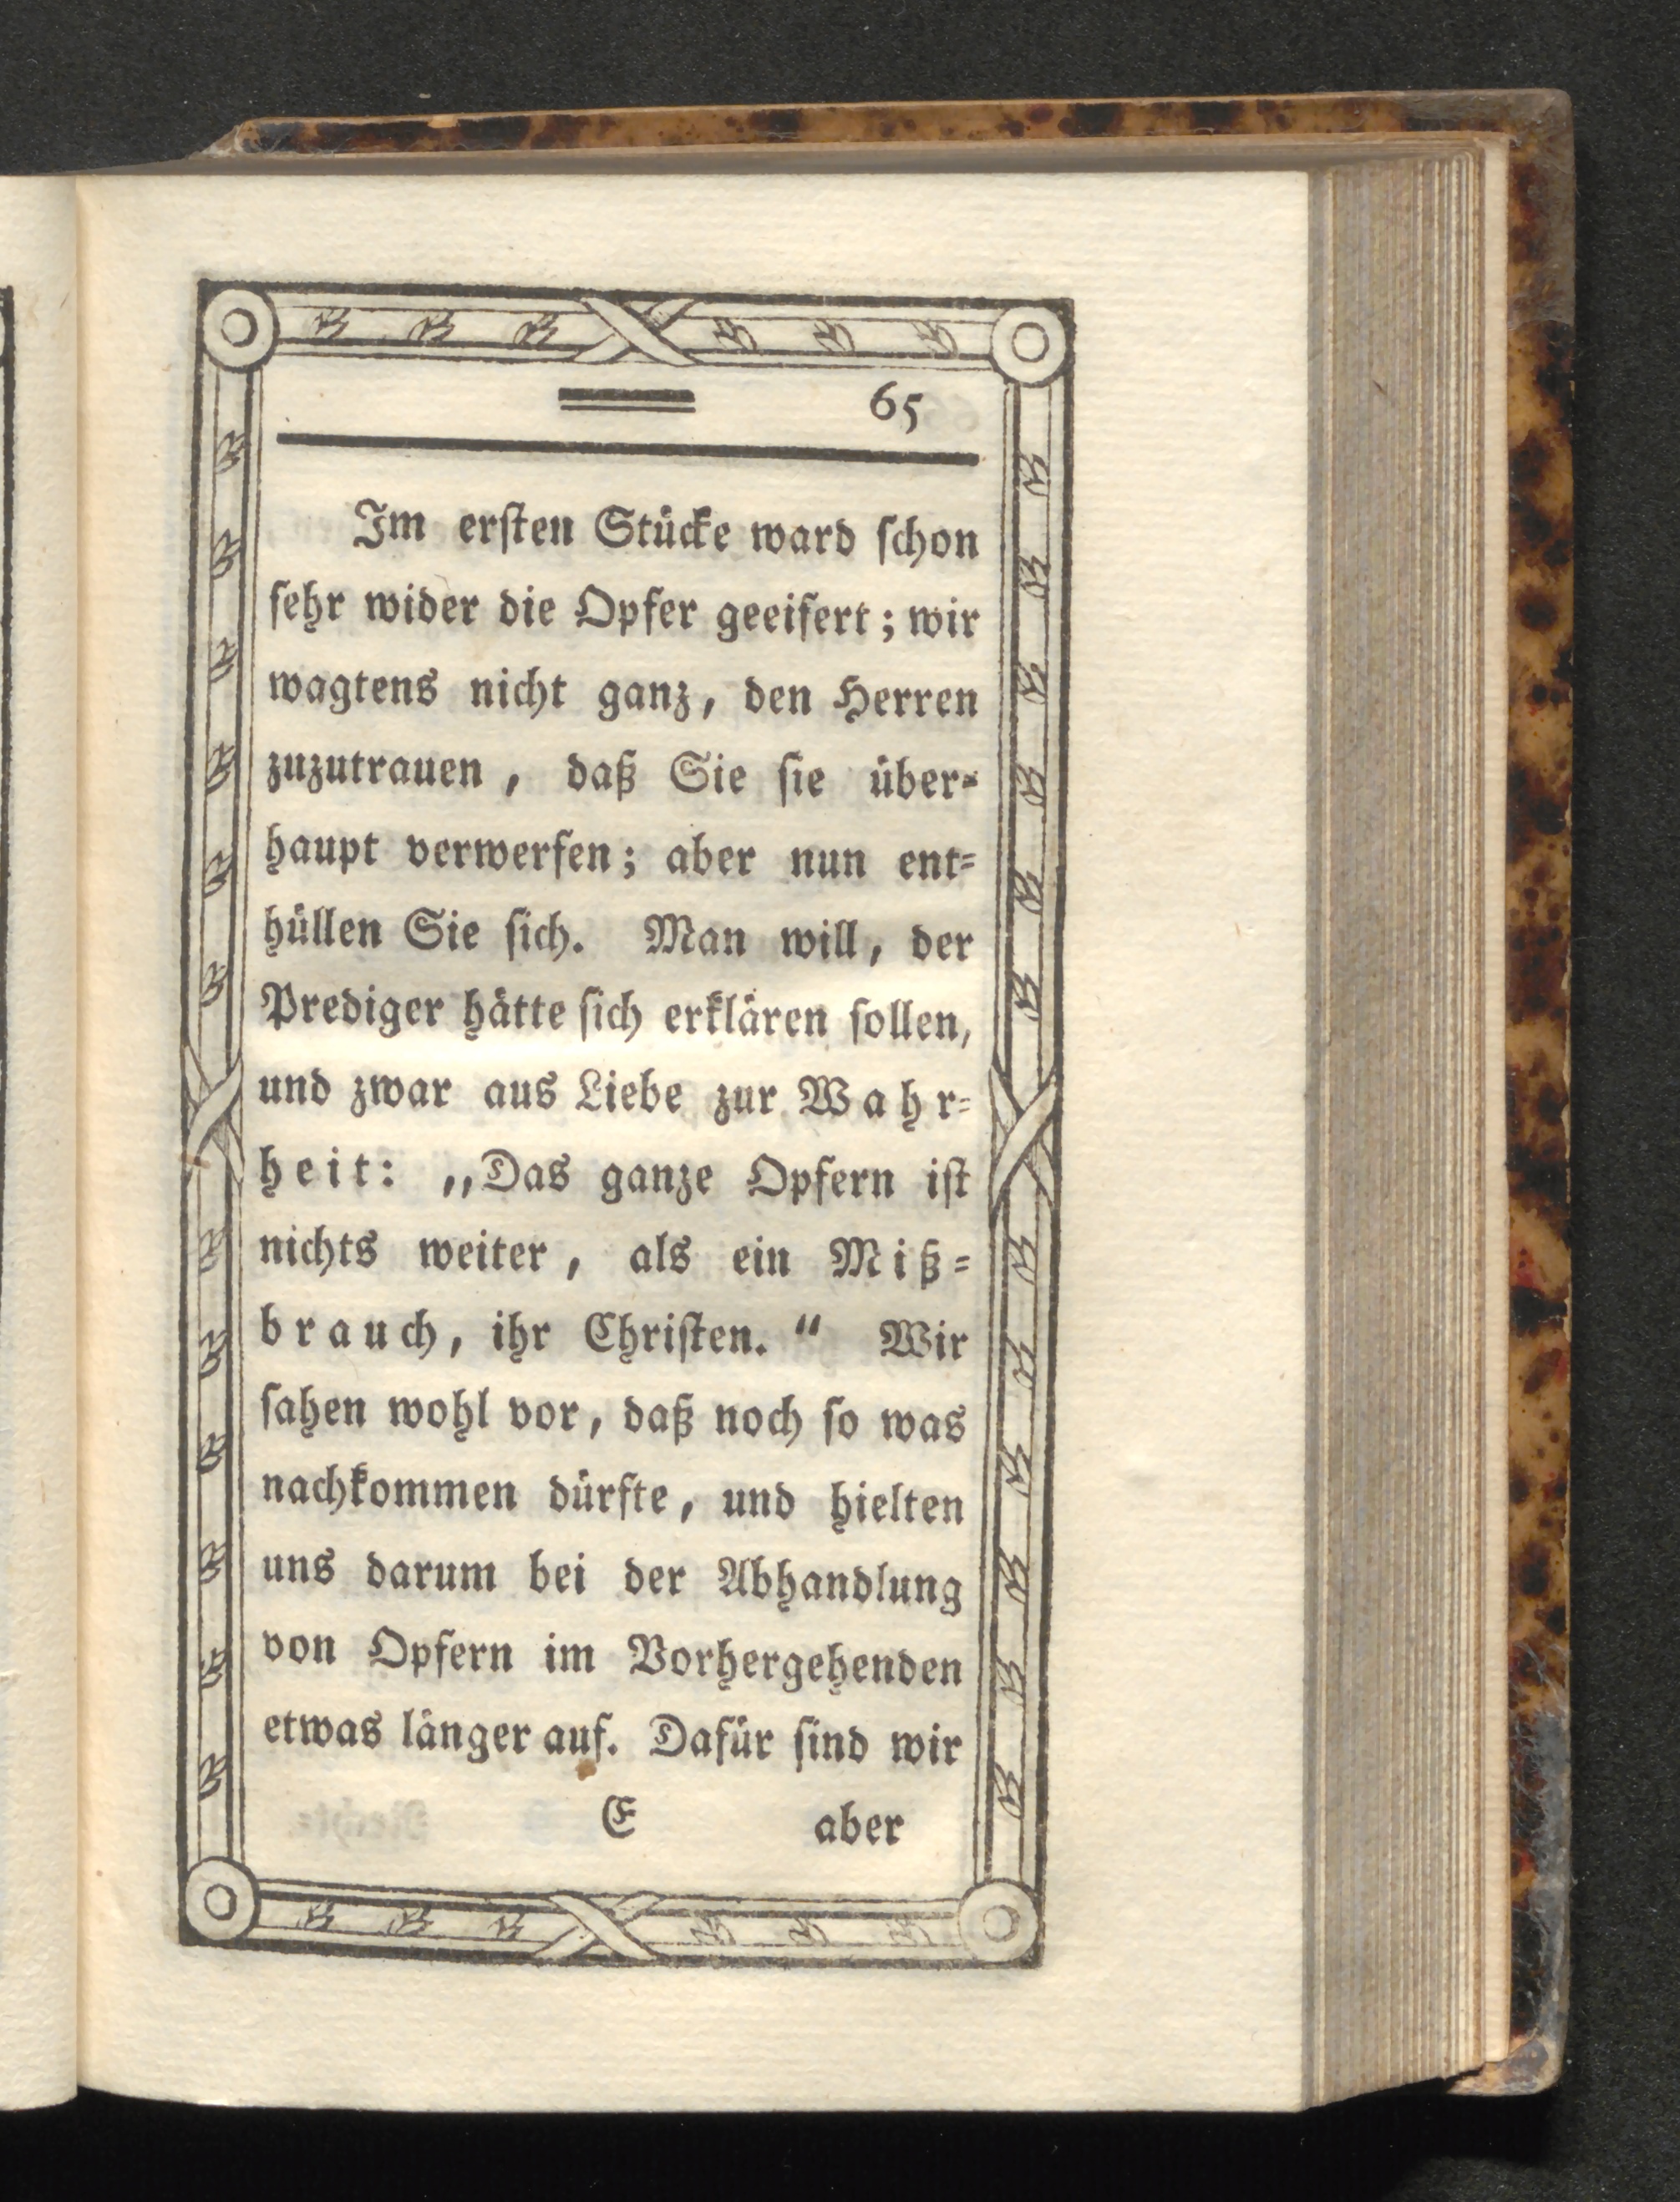 65
Im ersten Stücke ward schon
sehr wider die Opfer geeifert; wir
wagtens nicht ganz, den Herren
zuzutrauen, daß Sie sie über-
haupt verwerfen; aber nun ent-
hüllen Sie sich. Man will, der
Prediger hätte sich erklären sollen,
und zwar aus Liebe zur Wahr-
heit: „Das ganze Opfern ist
nichts weiter, als ein Miß-
brauch, ihr Christen.“ Wir
sahen wohl vor, daß noch so was
nachkommen dürfte, und hielten
uns darum bei der Abhandlung
von Opfern im Vorhergehenden
etwas länger auf. Dafür sind wir
E aber